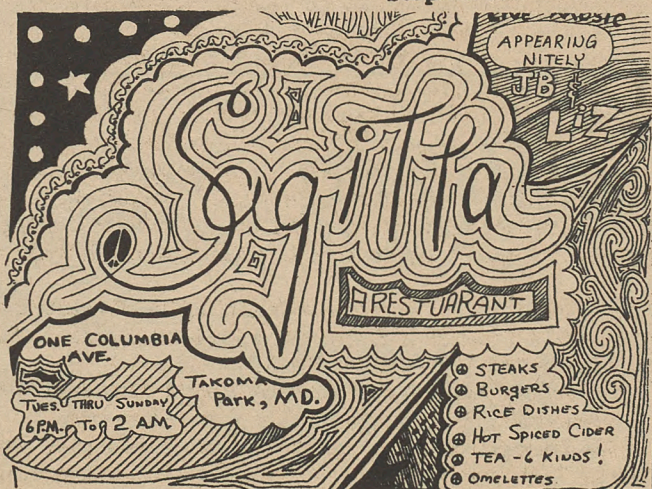 ALL WE NEED IS LOVE
LIVE MUSIC
APPEARING
NITELY
JB &
LIZ
Sagitta
A RESTUARANT
ONE COLUMBIA
AVE.
TAKOMA
PARK, MD.
TUES. THRU SUNDAY
6 P.M. TO 2 AM.
STEAKS
BURGERS
RICE DISHES
HOT SPICED CIDER
TEA - 6 KINDS!
OMELETTES